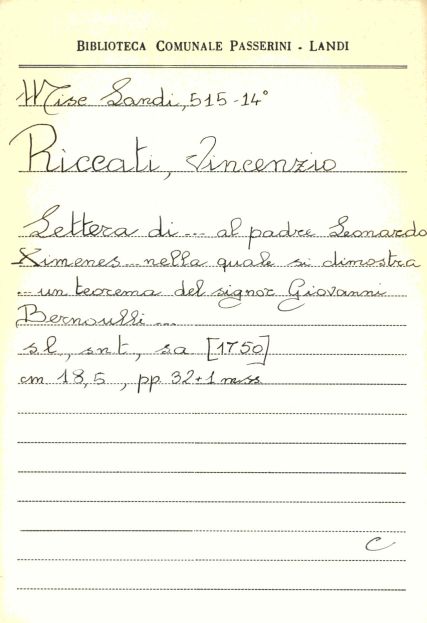 BIBLIOTECA COMUNALE PASSERINI - LANDI
Misc Landi, 515-14°
Riccati, Vincenzio
Lettera di... al padre Leonardo
Ximenes... nella quale si dimostra
... un teorema del signor Giovanni
Bernoulli...
s.l, s.n.t, s.a [1750]
cm 18,5, pp 32+1
C